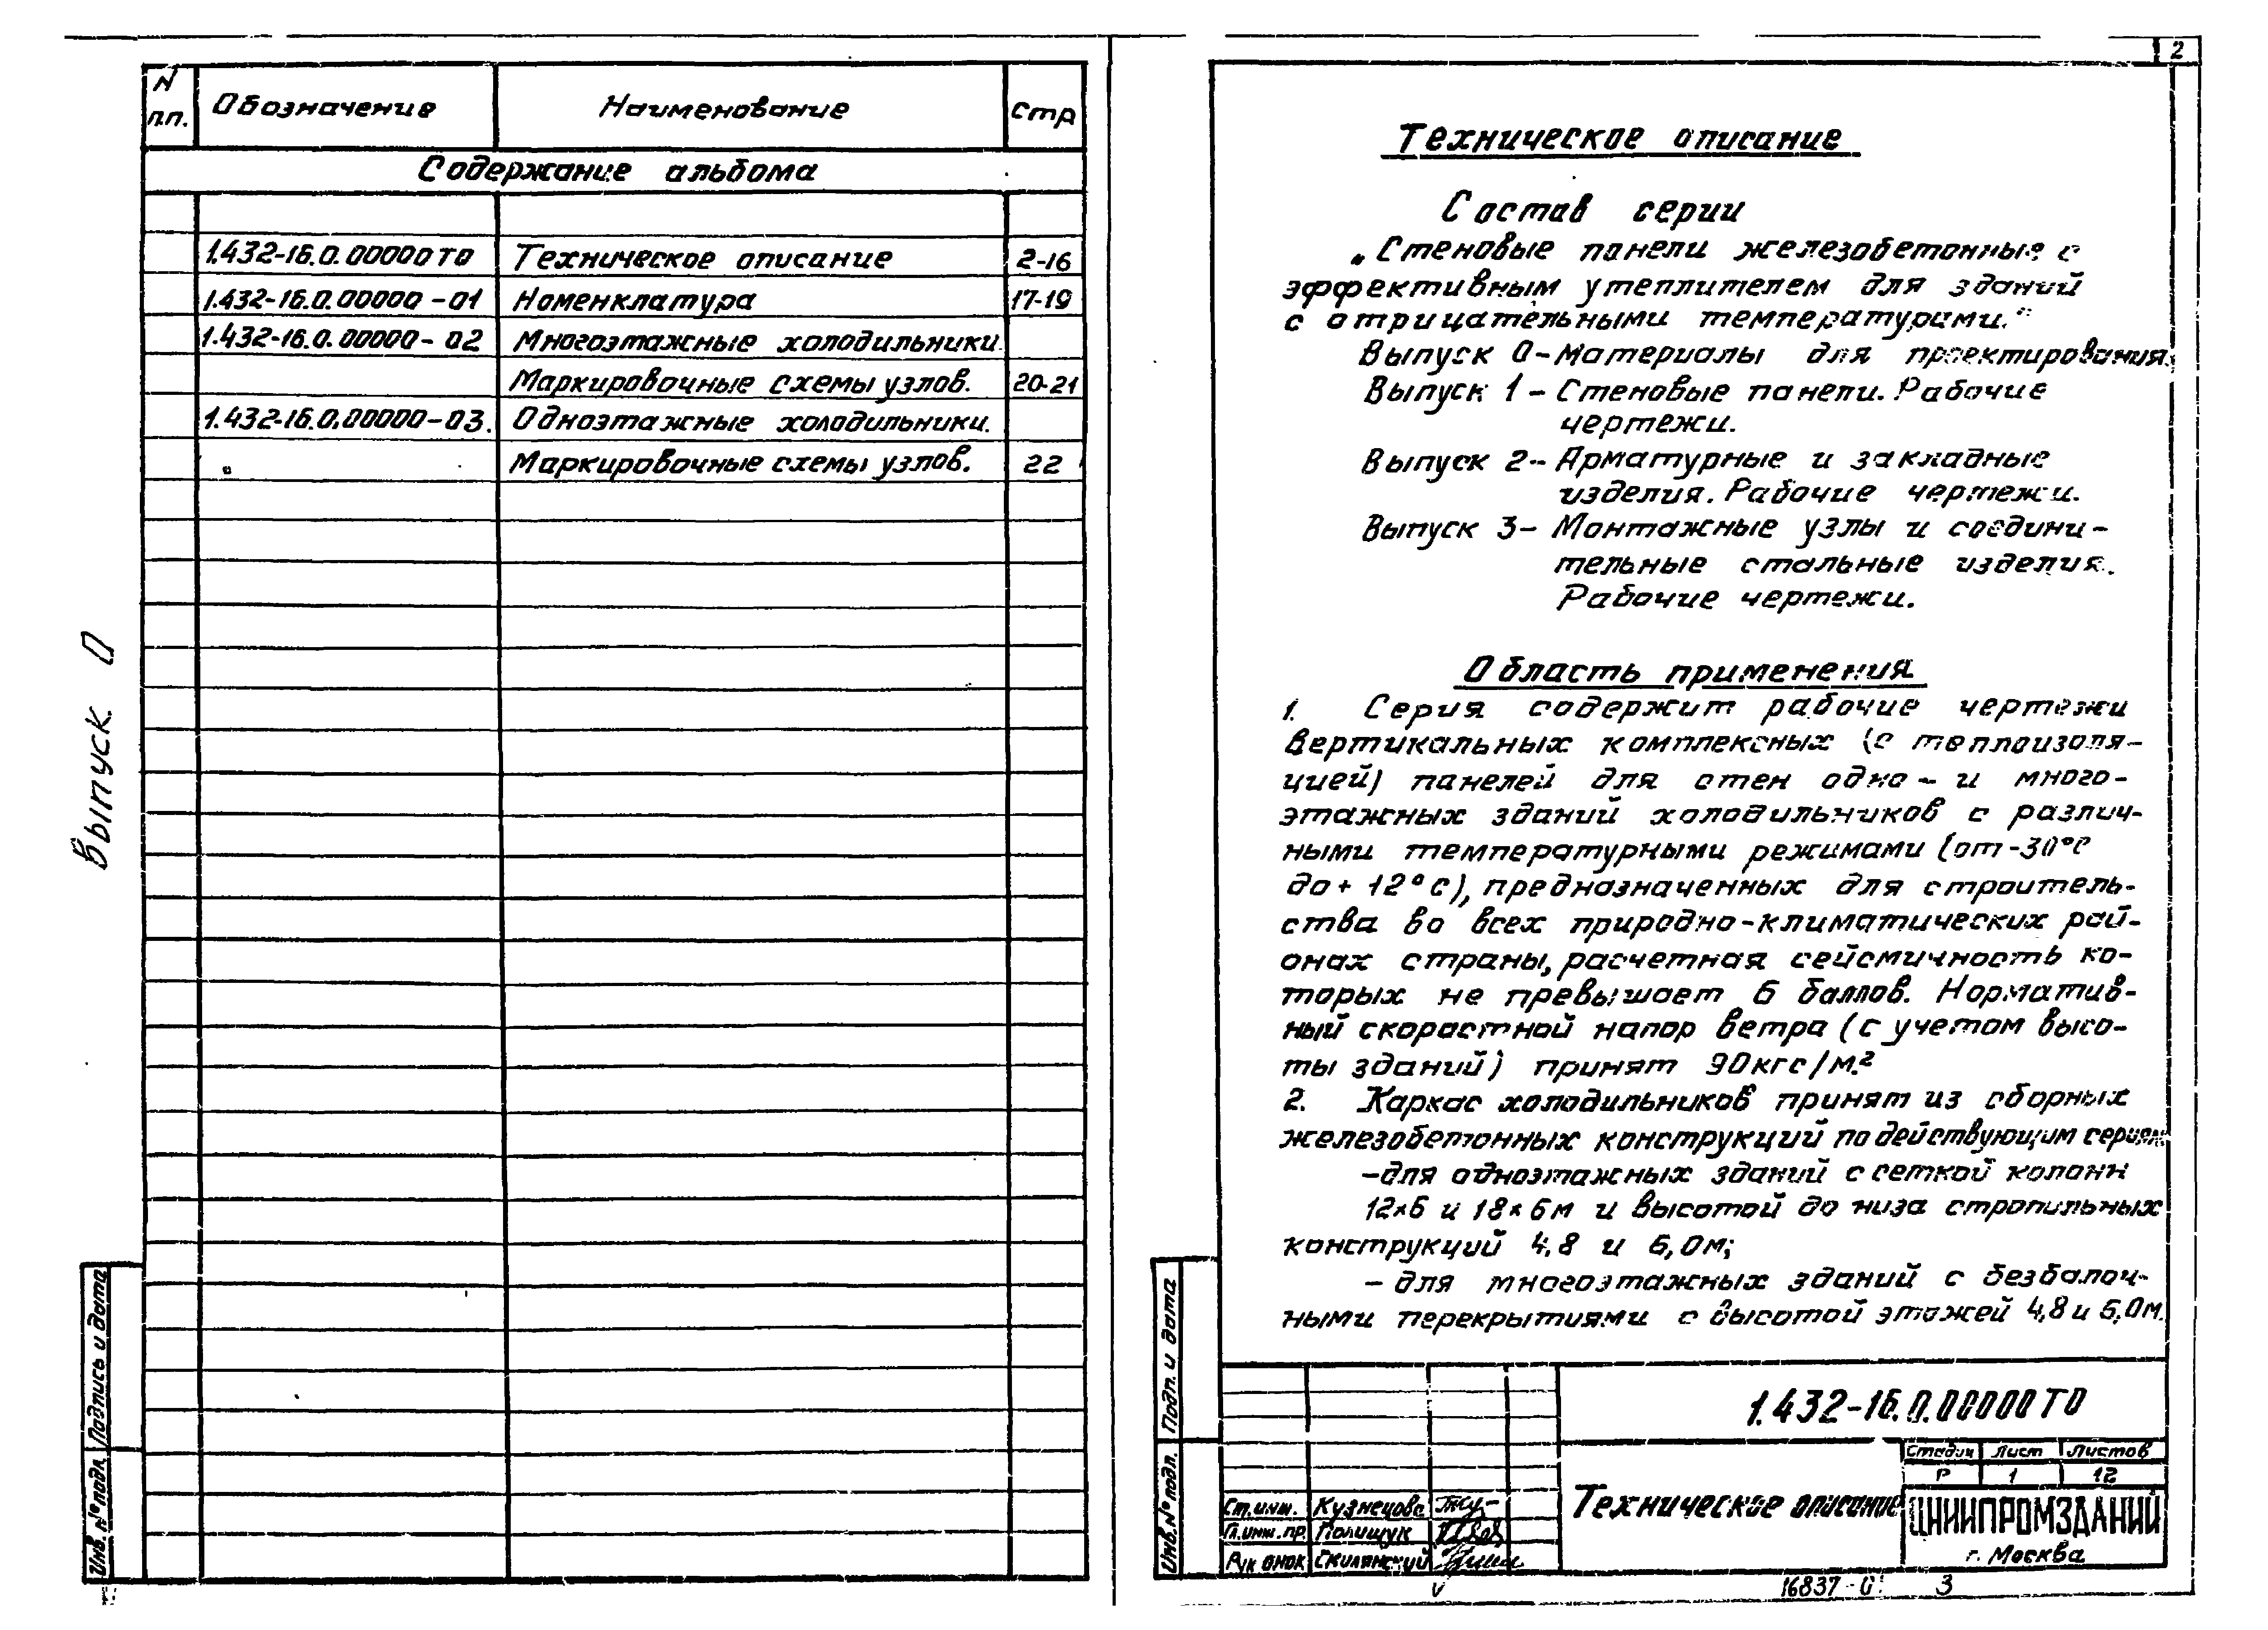 N п.п. Обозначение Наименование Стр
Содержание альбома
1.432-16.0.00000ТО Техническое описание 2-16
1.432-16.0.00000-01 Номенклатура 17-19
1.432-16.0.00000-02 Многоэтажные холодильники.
Маркировочные схемы узлов. 20-21
1.432-16.0.00000-03. Одноэтажные холодильники.
Маркировочные схемы узлов. 22
Выпуск 0
Подпись и дата
Инв. № подл.
2
Техническое описание
Состав серии
„Стеновые панели железобетонные с
эффективным утеплителем для зданий
с отрицательными температурами."
Выпуск 0-Материалы для проектирования.
Выпуск 1 - Стеновые панели. Рабочие
чертежи.
Выпуск 2- Арматурные и закладные
изделия. Рабочие чертежи.
Выпуск 3- Монтажные узлы и соедини-
тельные стальные изделия.
Рабочие чертежи.
Область применения
1. Серия содержит рабочие чертежи
вертикальных комплексных (с теплоизоля-
цией) панелей для стен одно- и много-
этажных зданий холодильников с различ-
ными температурными режимами (от-30°С
до+ 12°С), предназначенных для строитель-
ства во всех природно-климатических рай-
онах страны, расчетная сейсмичность ко-
торых не превышает 6 баллов. Норматив-
ный скоростной напор ветра (с учетом высо-
ты зданий) принят 90кгс/м.²
2. Каркас холодильников принят из сборных
железобетонных конструкций по действующим сериям
-для одноэтажных зданий с сеткой колонн
12×6 и 18×6м и высотой до низа стропильных
конструкций 4.8 и 6,0м;
- для многоэтажных зданий с безбалоч-
ными перекрытиями с высотой этажей 4,8 и 6,0м.
Подп. и дата
Инв. № подл.
1.432-16.0.00000ТО
Стадия Лист Листов
Р 1 12
Техническое описание
ЦНИИПРОМЗДАНИЙ
г. Москва
Ст.инж. Кузнецова
Гл.инж.пр. Полищук
Рук ОНОК Скилянский
16837-0 3